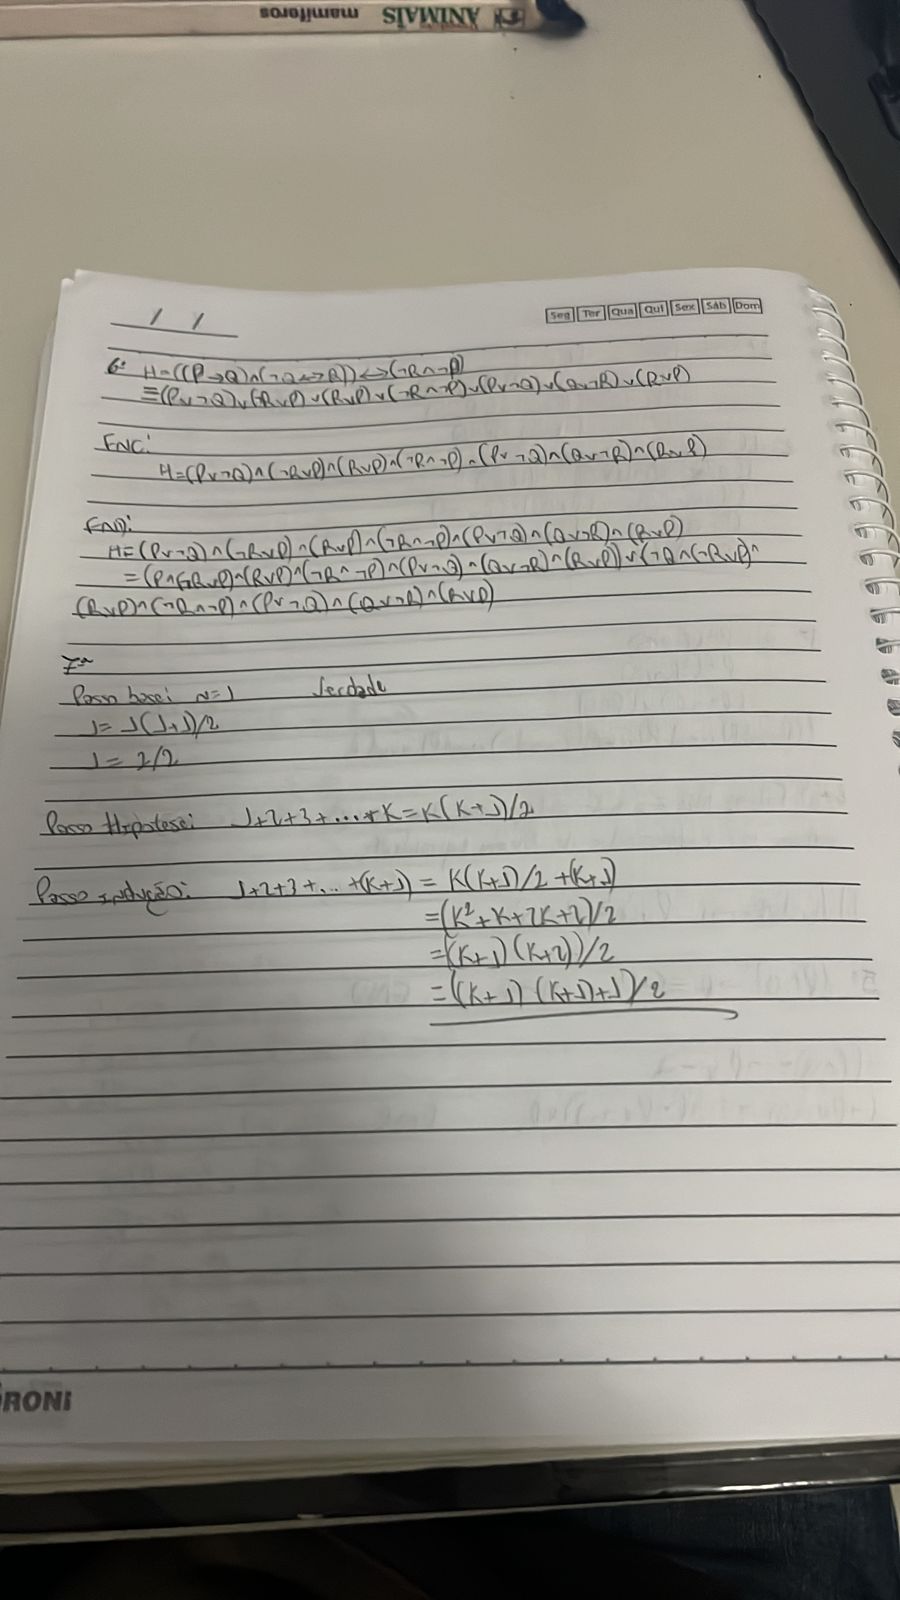 ANIMAIS mamíferos
Seg Ter Qua Qui Sex Sáb Dom
6ª H=((P→Q)∧(¬Q↔R))↔(¬R∧¬P)
≡(P∨¬Q)∨(¬R∨P)∨(R∨P)∨(¬R∧¬P)∨(P∨¬Q)∨(Q∨¬R)∨(R∨P)
FNC:
H=(P∨¬Q)∧(¬R∨P)∧(R∨P)∧(¬R∧¬P)∧(P∨¬Q)∧(Q∨¬R)∧(R∨P)
FND:
H=(P∨¬Q)∧(¬R∨P)∧(R∨P)∧(¬R∧¬P)∧(P∨¬Q)∧(Q∨¬R)∧(R∨P)
=(P∧(¬R∨P)∧(R∨P)∧(¬R∧¬P)∧(P∨¬Q)∧(Q∨¬R)∧(R∨P))∨(¬Q∧(¬R∨P)∧
(R∨P)∧(¬R∧¬P)∧(P∨¬Q)∧(Q∨¬R)∧(R∨P)
7ª
Passo base: n=1 Verdade
1=1(1+1)/2
1=2/2
Passo Hipotese: 1+2+3+...+K=K(K+1)/2
Passo indução: 1+2+3+...+(K+1)=K(K+1)/2+(K+1)
=(K²+K+2K+2)/2
=(K+1)(K+2))/2
=((K+1)(K+1)+1)/2
RONI